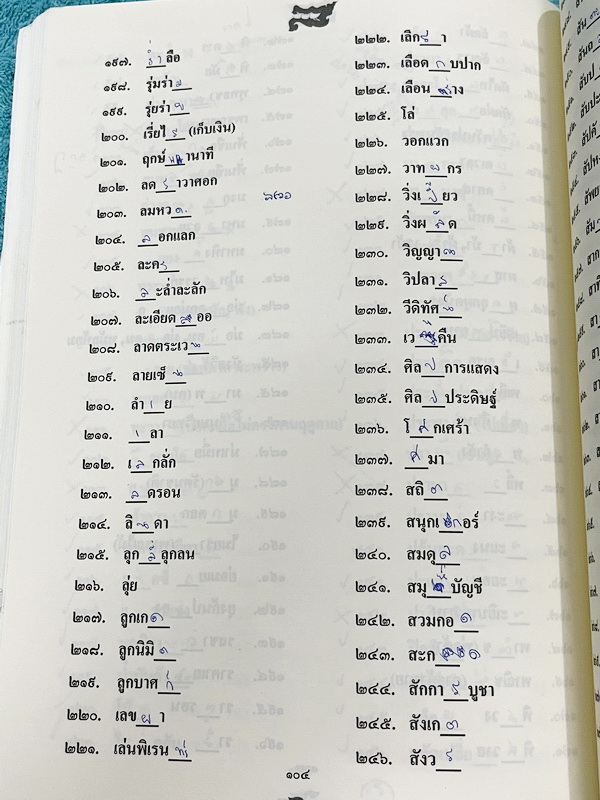 ๑๙๗. ร่ำลือ
๑๙๘. รุ่มร่าม
๑๙๙. รุ่ยร่าย
๒๐๐. เรี่ยไร (เก็บเงิน)
๒๐๑. ฤกษ์ผานาที
๒๐๒. ลดราวาศอก
๒๐๓. ลมหวล
๒๐๔. ลอกแลก
๒๐๕. ละคร
๒๐๖. ละล่ำละลัก
๒๐๗. ละเอียดลออ
๒๐๘. ลาดตระเวน
๒๐๙. ลายเซ็น
๒๑๐. ลำเย
๒๑๑. เลา
๒๑๒. เลกลั่ก
๒๑๓. ลดรอน
๒๑๔. ลินดา
๒๑๕. ลุกลี้ลุกลน
๒๑๖. ลุ่ย
๒๑๗. ลูกเกด
๒๑๘. ลูกนิมิต
๒๑๙. ลูกบาศก์
๒๒๐. เลขผา
๒๒๑. เล่นพิเรนทร์
๒๒๒. เลิกรา
๒๒๓. เลือดกบปาก
๒๒๔. เลือนราง
๒๒๕. โล่
๒๒๖. วอกแวก
๒๒๗. วาทยกร
๒๒๘. วิ่งเปี้ยว
๒๒๙. วิ่งผลัด
๒๓๐. วิญญาณ
๒๓๑. วิปลาส
๒๓๒. วีดิทัศน์
๒๓๓. เวคืน
๒๓๔. ศิลปการแสดง
๒๓๕. ศิลปประดิษฐ์
๒๓๖. โศกเศร้า
๒๓๗. ศมา
๒๓๘. สถิต
๒๓๙. สนุกเกอร์
๒๔๐. สมดุล
๒๔๑. สมุห์บัญชี
๒๔๒. สวมกอด
๒๔๓. สะกด
๒๔๔. สักการบูชา
๒๔๕. สังเกต
๒๔๖. สังวร
๑๐๔